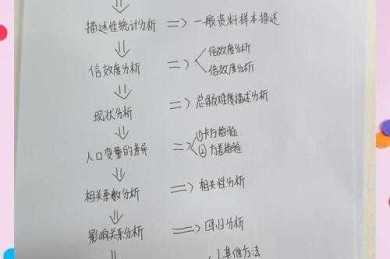 描述性统计分析 => 一般资料样本描述
信效度分析 => 信效度分析
信效度分析
现状分析 => 总体难度描述分析
人口变量的差异 => ①卡方检验
②方差检验
相关系数分析 => 相关性分析
影响关系分析 => 回归分析
其他方法